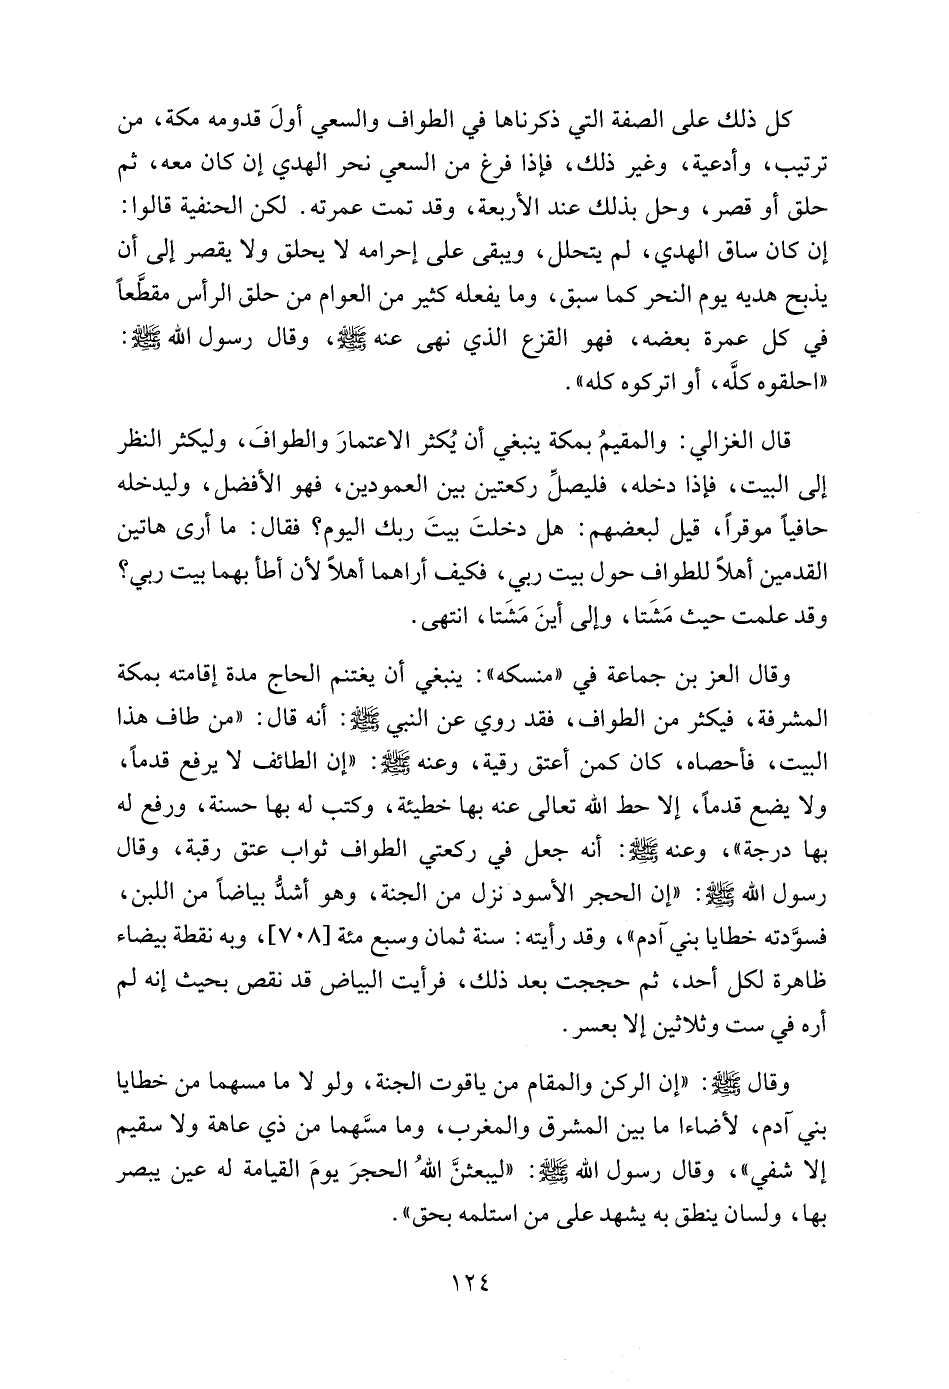 كل ذلك على الصفة التي ذكرناها في الطواف والسعي أولَ قدومه مكة، من
ترتيب، وأدعية، وغير ذلك، فإذا فرغ من السعي نحر الهدي إن كان معه، ثم
حلق أو قصر، وحل بذلك عند الأربعة، وقد تمت عمرته. لكن الحنفية قالوا:
إن كان ساق الهدي، لم يتحلل، ويبقى على إحرامه لا يحلق ولا يقصر إلى أن
يذبح هديه يوم النحر كما سبق، وما يفعله كثير من العوام من حلق الرأس مقطَّعاً
في كل عمرة بعضه، فهو القزع الذي نهى عنه ﷺ، وقال رسول الله ﷺ:
«احلقوه كلَّه، أو اتركوه كله».
قال الغزالي: والمقيمُ بمكة ينبغي أن يُكثر الاعتمارَ والطوافَ، وليكثر النظر
إلى البيت، فإذا دخله، فليصلِّ ركعتين بين العمودين، فهو الأفضل، وليدخله
حافياً موقراً، قيل لبعضهم: هل دخلتَ بيتَ ربك اليوم؟ فقال: ما أرى هاتين
القدمين أهلاً للطواف حول بيت ربي، فكيف أراهما أهلاً لأن أطأ بهما بيت ربي؟
وقد علمت حيث مَشَتا، وإلى أينَ مَشَتا، انتهى.
وقال العز بن جماعة في «منسكه»: ينبغي أن يغتنم الحاج مدة إقامته بمكة
المشرفة، فيكثر من الطواف، فقد روي عن النبي ﷺ: أنه قال: «من طاف هذا
البيت، فأحصاه، كان كمن أعتق رقبة، وعنه ﷺ: «إن الطائف لا يرفع قدماً،
ولا يضع قدماً، إلا حط الله تعالى عنه بها خطيئة، وكتب له بها حسنة، ورفع له
بها درجة»، وعنه ﷺ: أنه جعل في ركعتي الطواف ثواب عتق رقبة، وقال
رسول الله ﷺ: «إن الحجر الأسود نزل من الجنة، وهو أشدُّ بياضاً من اللبن،
فسوَّدته خطايا بني آدم»، وقد رأيته: سنة ثمان وسبع مئة [٧٠٨]، وبه نقطة بيضاء
ظاهرة لكل أحد، ثم حججت بعد ذلك، فرأيت البياض قد نقص بحيث إنه لم
أره في ست وثلاثين إلا بعسر.
وقال ﷺ: «إن الركن والمقام من ياقوت الجنة، ولو لا ما مسهما من خطايا
بني آدم، لأضاءا ما بين المشرق والمغرب، وما مسَّهما من ذي عاهة ولا سقيم
إلا شفي»، وقال رسول الله ﷺ: «ليبعثنَّ اللهُ الحجرَ يومَ القيامة له عين يبصر
بها، ولسان ينطق به يشهد على من استلمه بحق».
١٢٤